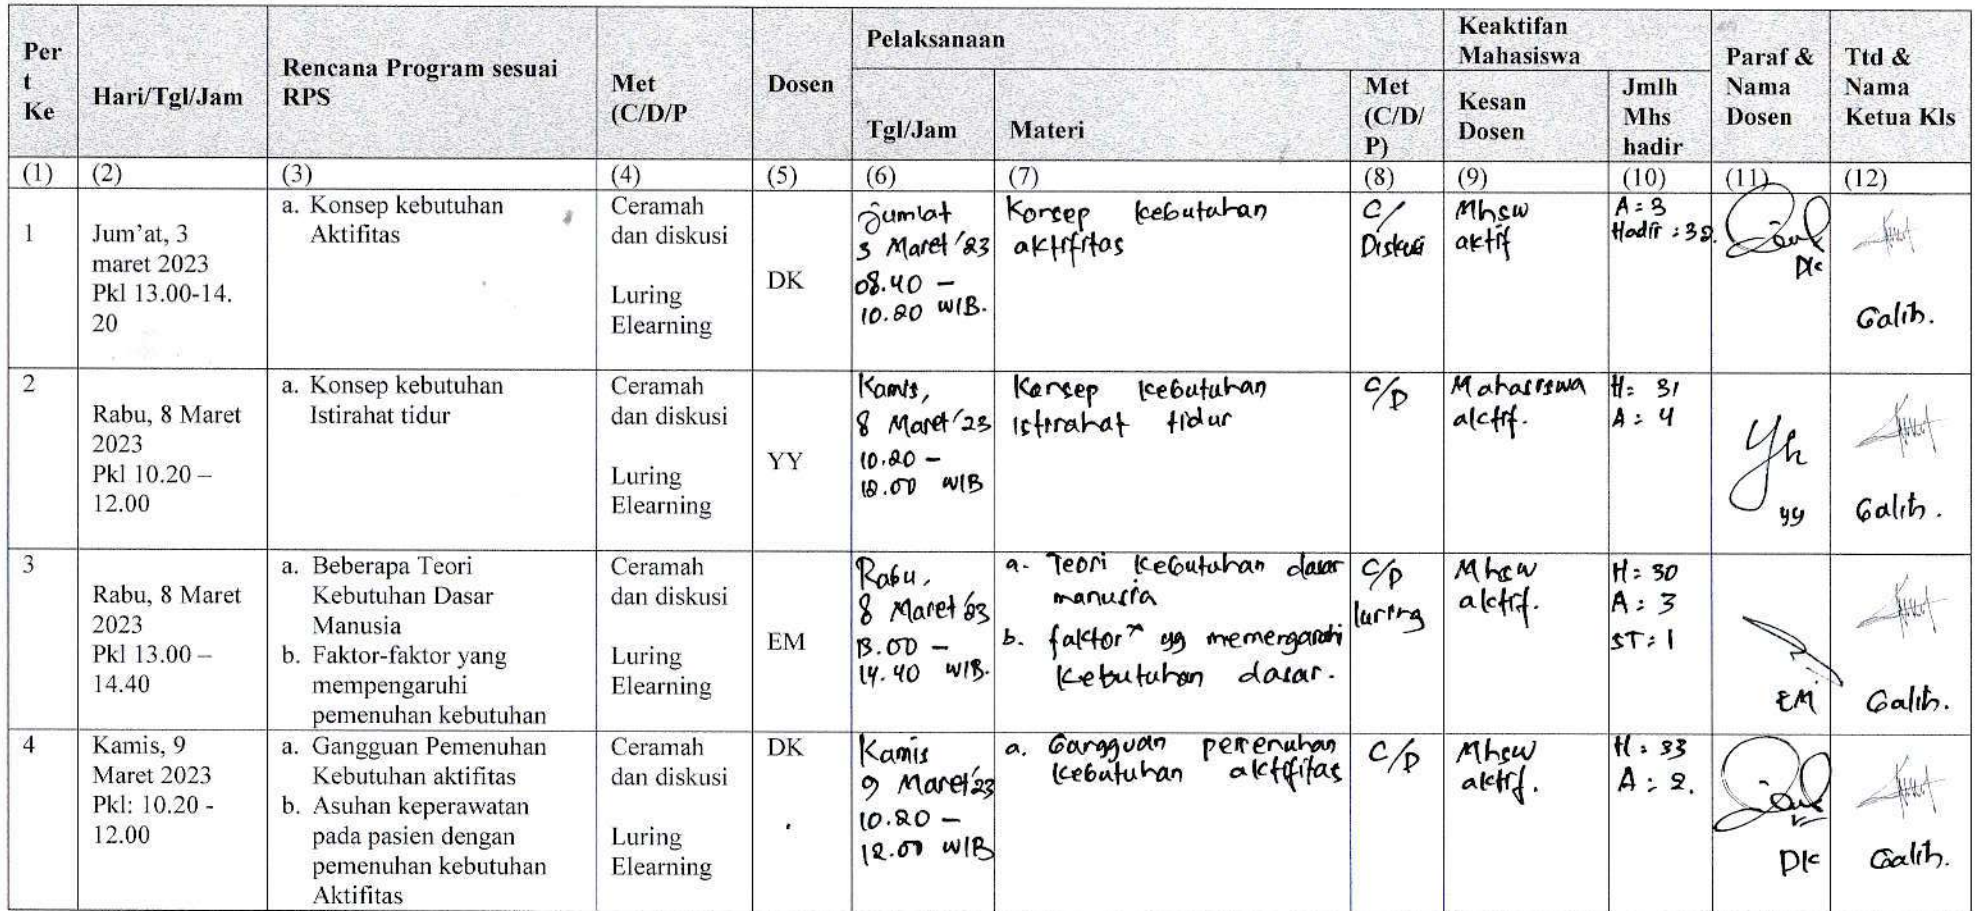 Per
t
Ke
Hari/Tgl/Jam
Rencana Program sesuai
RPS
Met
(C/D/P
Dosen
Pelaksanaan
Tgl/Jam
Materi
Met
(C/D/
P)
Keaktifan
Mahasiswa
Kesan
Dosen
Jmlh
Mhs
hadir
Paraf &
Nama
Dosen
Ttd &
Nama
Ketua Kls
(1)
(2)
(3)
(4)
(5)
(6)
(7)
(8)
(9)
(10)
(11)
(12)
1
Jum'at, 3
maret 2023
Pkl 13.00-14.
20
a. Konsep kebutuhan
Aktifitas
Ceramah
dan diskusi
Luring
Elearning
DK
Jumlat
3 Maret '23
08.40 –
10.20 WIB.
Konsep kebutuhan
aktifitas
C/
Diskusi
Mhsw
aktif
A = 3
Hadir : 32.
DK
Galih.
2
Rabu, 8 Maret
2023
Pkl 10.20 –
12.00
a. Konsep kebutuhan
Istirahat tidur
Ceramah
dan diskusi
Luring
Elearning
YY
Kamis,
8 Maret '23
10.20 –
12.00 WIB
Konsep kebutuhan
istirahat tidur
C/D
Mahasiswa
aktif.
H = 31
A = 4
yy
Galih.
3
Rabu, 8 Maret
2023
Pkl 13.00 –
14.40
a. Beberapa Teori
Kebutuhan Dasar
Manusia
b. Faktor-faktor yang
mempengaruhi
pemenuhan kebutuhan
Ceramah
dan diskusi
Luring
Elearning
EM
Rabu,
8 Maret '23
13.00 –
14.40 WIB.
a. Teori kebutuhan dasar
manusia
b. faktor" yg memengaruhi
kebutuhan dasar.
C/D
luring
Mhsw
aktif.
H = 30
A : 3
ST : 1
EM
Galih.
4
Kamis, 9
Maret 2023
Pkl: 10.20 -
12.00
a. Gangguan Pemenuhan
Kebutuhan aktifitas
b. Asuhan keperawatan
pada pasien dengan
pemenuhan kebutuhan
Aktifitas
Ceramah
dan diskusi
Luring
Elearning
DK
Kamis
9 Maret '23
10.20 –
12.00 WIB
a. Gangguan pemenuhan
kebutuhan aktifitas
C/D
Mhsw
aktif.
H : 33
A : 2.
DK
Galih.